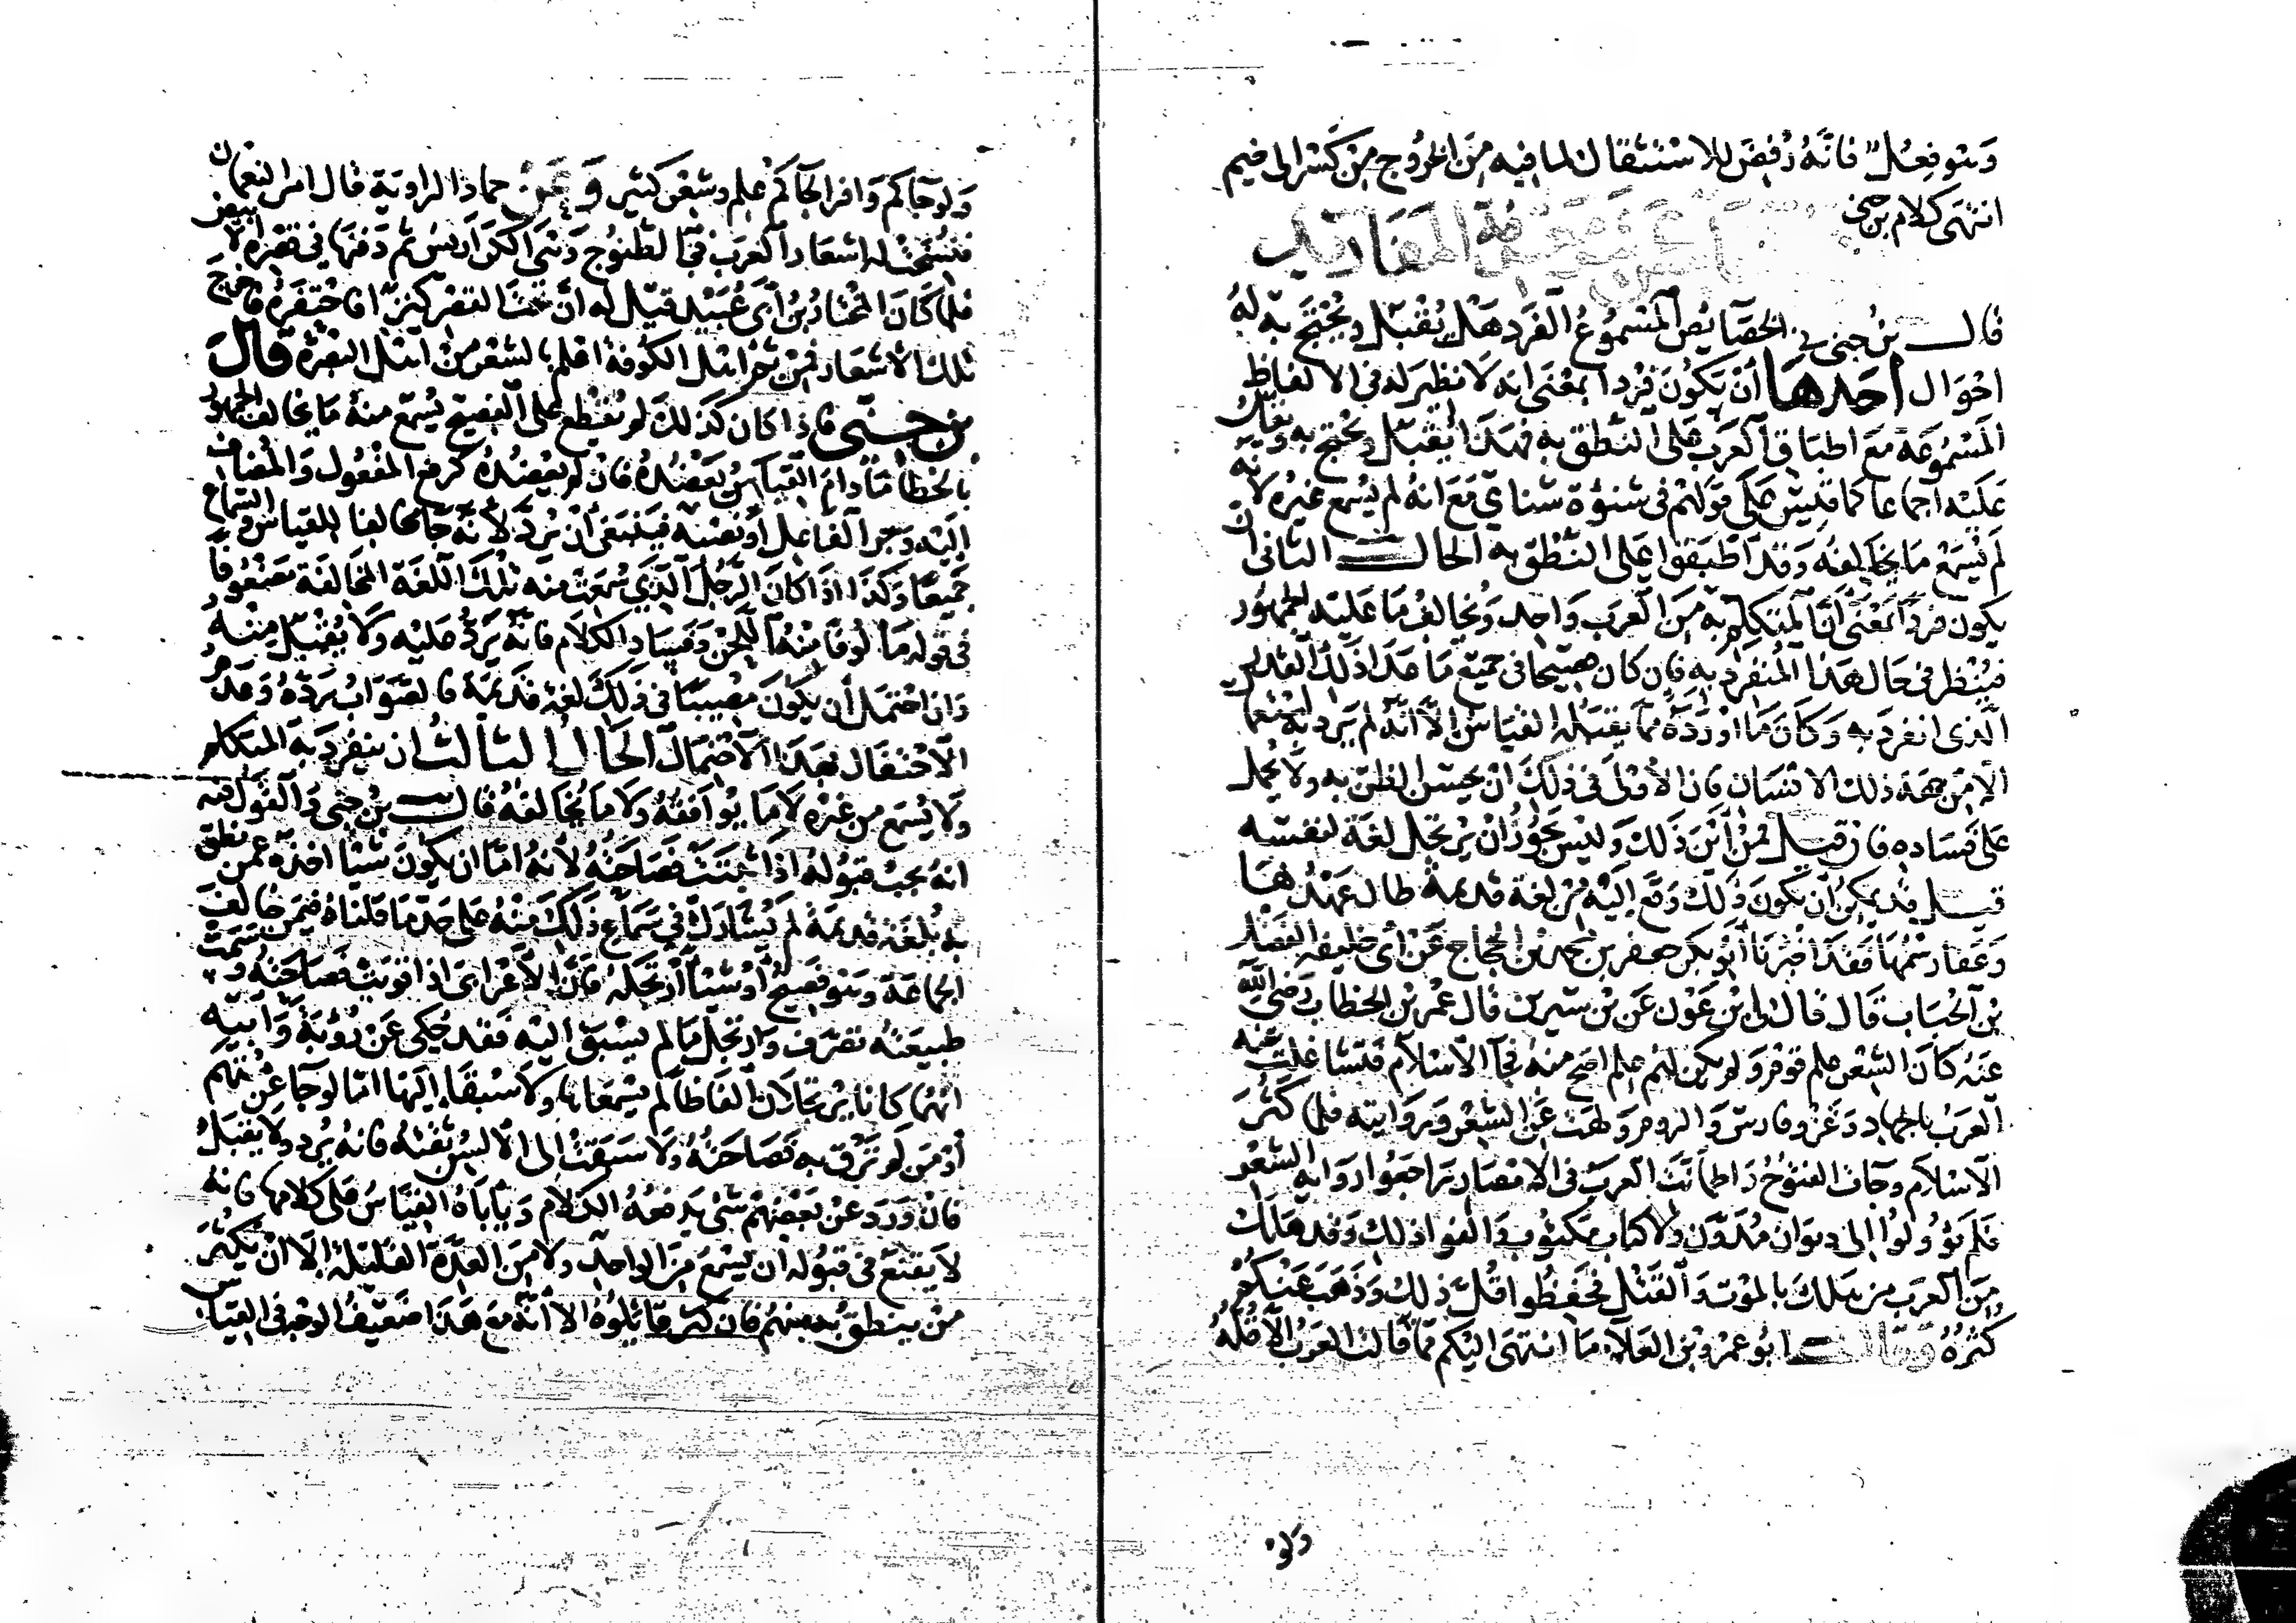 وهو فعل فانه رفض للاستثقال لما فيه من الخروج من كسر الى ضم
انتهى كلام بن جني
معرفة المفاريد
قال بن جني في الخصايص المسموع الفرد هل يقبل ويحتج به له
احوال احدها أن يكون فردا بمعنى انه لا نظير له في الالفاظ
المسموعة مع اطباق العرب على النطق به فهذا يقبل ويحتج به ويقاس
عليه اجماعا كما قيس على قولهم في شنوة شنايي مع انه لم يسمع غيره لانه
لم يسمع ما يخالفه وقد اطبقوا على النطق به الحال الثاني ان
يكون فردا بمعنى أن المتكلم به من العرب واحد ويخالف ما عليه الجمهور
فينظر في حال هذا المنفرد به فان كان فصيحا في جميع ما عدا ذلك القدر
الذي انفرد به وكان ما اورده مما يقبله القياس الا انه لم يرد به استعمال
الا من جهة ذلك الانسان فان الاولى في ذلك ان يحسن الظن به ولا يحمل
على فساده فان قيل فمن أين ذلك وليس يجوز ان يرتجل لغة لنفسه
قيل قد يمكن أن يكون ذلك وقع اليه من لغة قديمة طال عهدها
وعفا رسمها فقد اخبرنا أبو بكر جعفر بن محمد بن الحجاج عن أبي خليفة الفضل
بن الحباب قال قال لي بن عون عن بن سيرين قال عمر بن الخطاب رضي الله
عنه كان الشعر علم قوم ولم يكن لهم علم اصح منه فجآ الاسلام فتشاغلت عنه
العرب بالجهاد وغزو فارس والروم ولهت عن الشعر وروايته فلما كثر
الاسلام وجات الفتوح واطمأنت العرب في الامصار راجعوا رواية الشعر
فلم يؤولوا الى ديوان مدون ولا كتاب مكتوب والفوا ذلك وقد هلك
من العرب من هلك بالموت والقتل فحفظوا اقل ذلك وذهب عنهم
كثره وقال ابو عمرو بن العلآ ما انتهى اليكم مما قالت العرب الا قله
ولو
ولو جآكم وافرا لجآكم علم وشعر كثير وعن حماد الراوية قال امر النعمان
فنسخت له اشعار العرب في الطنوج وهي الكراريس ثم دفنها في قصره الابيض
فلما كان المختار بن أبي عبيد قيل له ان تحت القصر كنزا فاحتفره فاخرج
تلك الاشعار فمن ثم اهل الكوفة اعلم بالشعر من اهل البصرة قال
بن جني فاذا كان كذلك لم نقطع على الفصيح يسمع منه ما يخالف الجمهور
بالخطأ ما دام القياس يعضده فان لم يعضده كرفع المفعول والمضاف
اليه وجر الفاعل أو نصبه فينبغي أن يرد لأنه جآ مخالفا للقياس والسماع
جميعا وكذا اذا كان الرجل الذي سمعت منه تلك اللغة المخالفة مضعوفا
في قوله مألوفا منه اللحن وفساد الكلام فانه يرد عليه ولا يقبل منه
وان احتمل أن يكون مصيبا في ذلك لغة قديمة فالصواب رده وعدم
الاحتفال بهذا الاحتمال الحال الثالث ان ينفرد به المتكلم
ولا يسمع من غيره لا ما يوافقه ولا ما يخالفه قال بن جني والقول فيه
انه يجب قبوله اذا ثبتت فصاحته لأنه اما ان يكون شيئا اخذه عمن نطق
به بلغة قديمة لم يشارك في سماع ذلك منه على حد ما قلناه فيمن خالف
الجماعة وهو فصيح أو شيئا ارتجله فان الاعرابي اذا قويت فصاحته وسمت
طبيعته تصرف وارتجل ما لم يسبق اليه فقد حكي عن رؤبة وأبيه
انهما كانا يرتجلان الفاظا لم يسمعاها ولا سبقا اليها اما لو جآ عن متهم
أو من لم ترق به فصاحته ولا سبقت الى الانس نفسه فانه يرد ولا يقبل
فان ورد عن بعضهم شي يدفعه الكلام ويأباه القياس على كلامها فانه
لا يقنع في قبوله ان يسمع من الواحد ولا من العدة القليلة الا ان يكثر
من ينطق به منهم فان كثر قائلوه الا انه مع هذا ضعيف الوجه في القياس